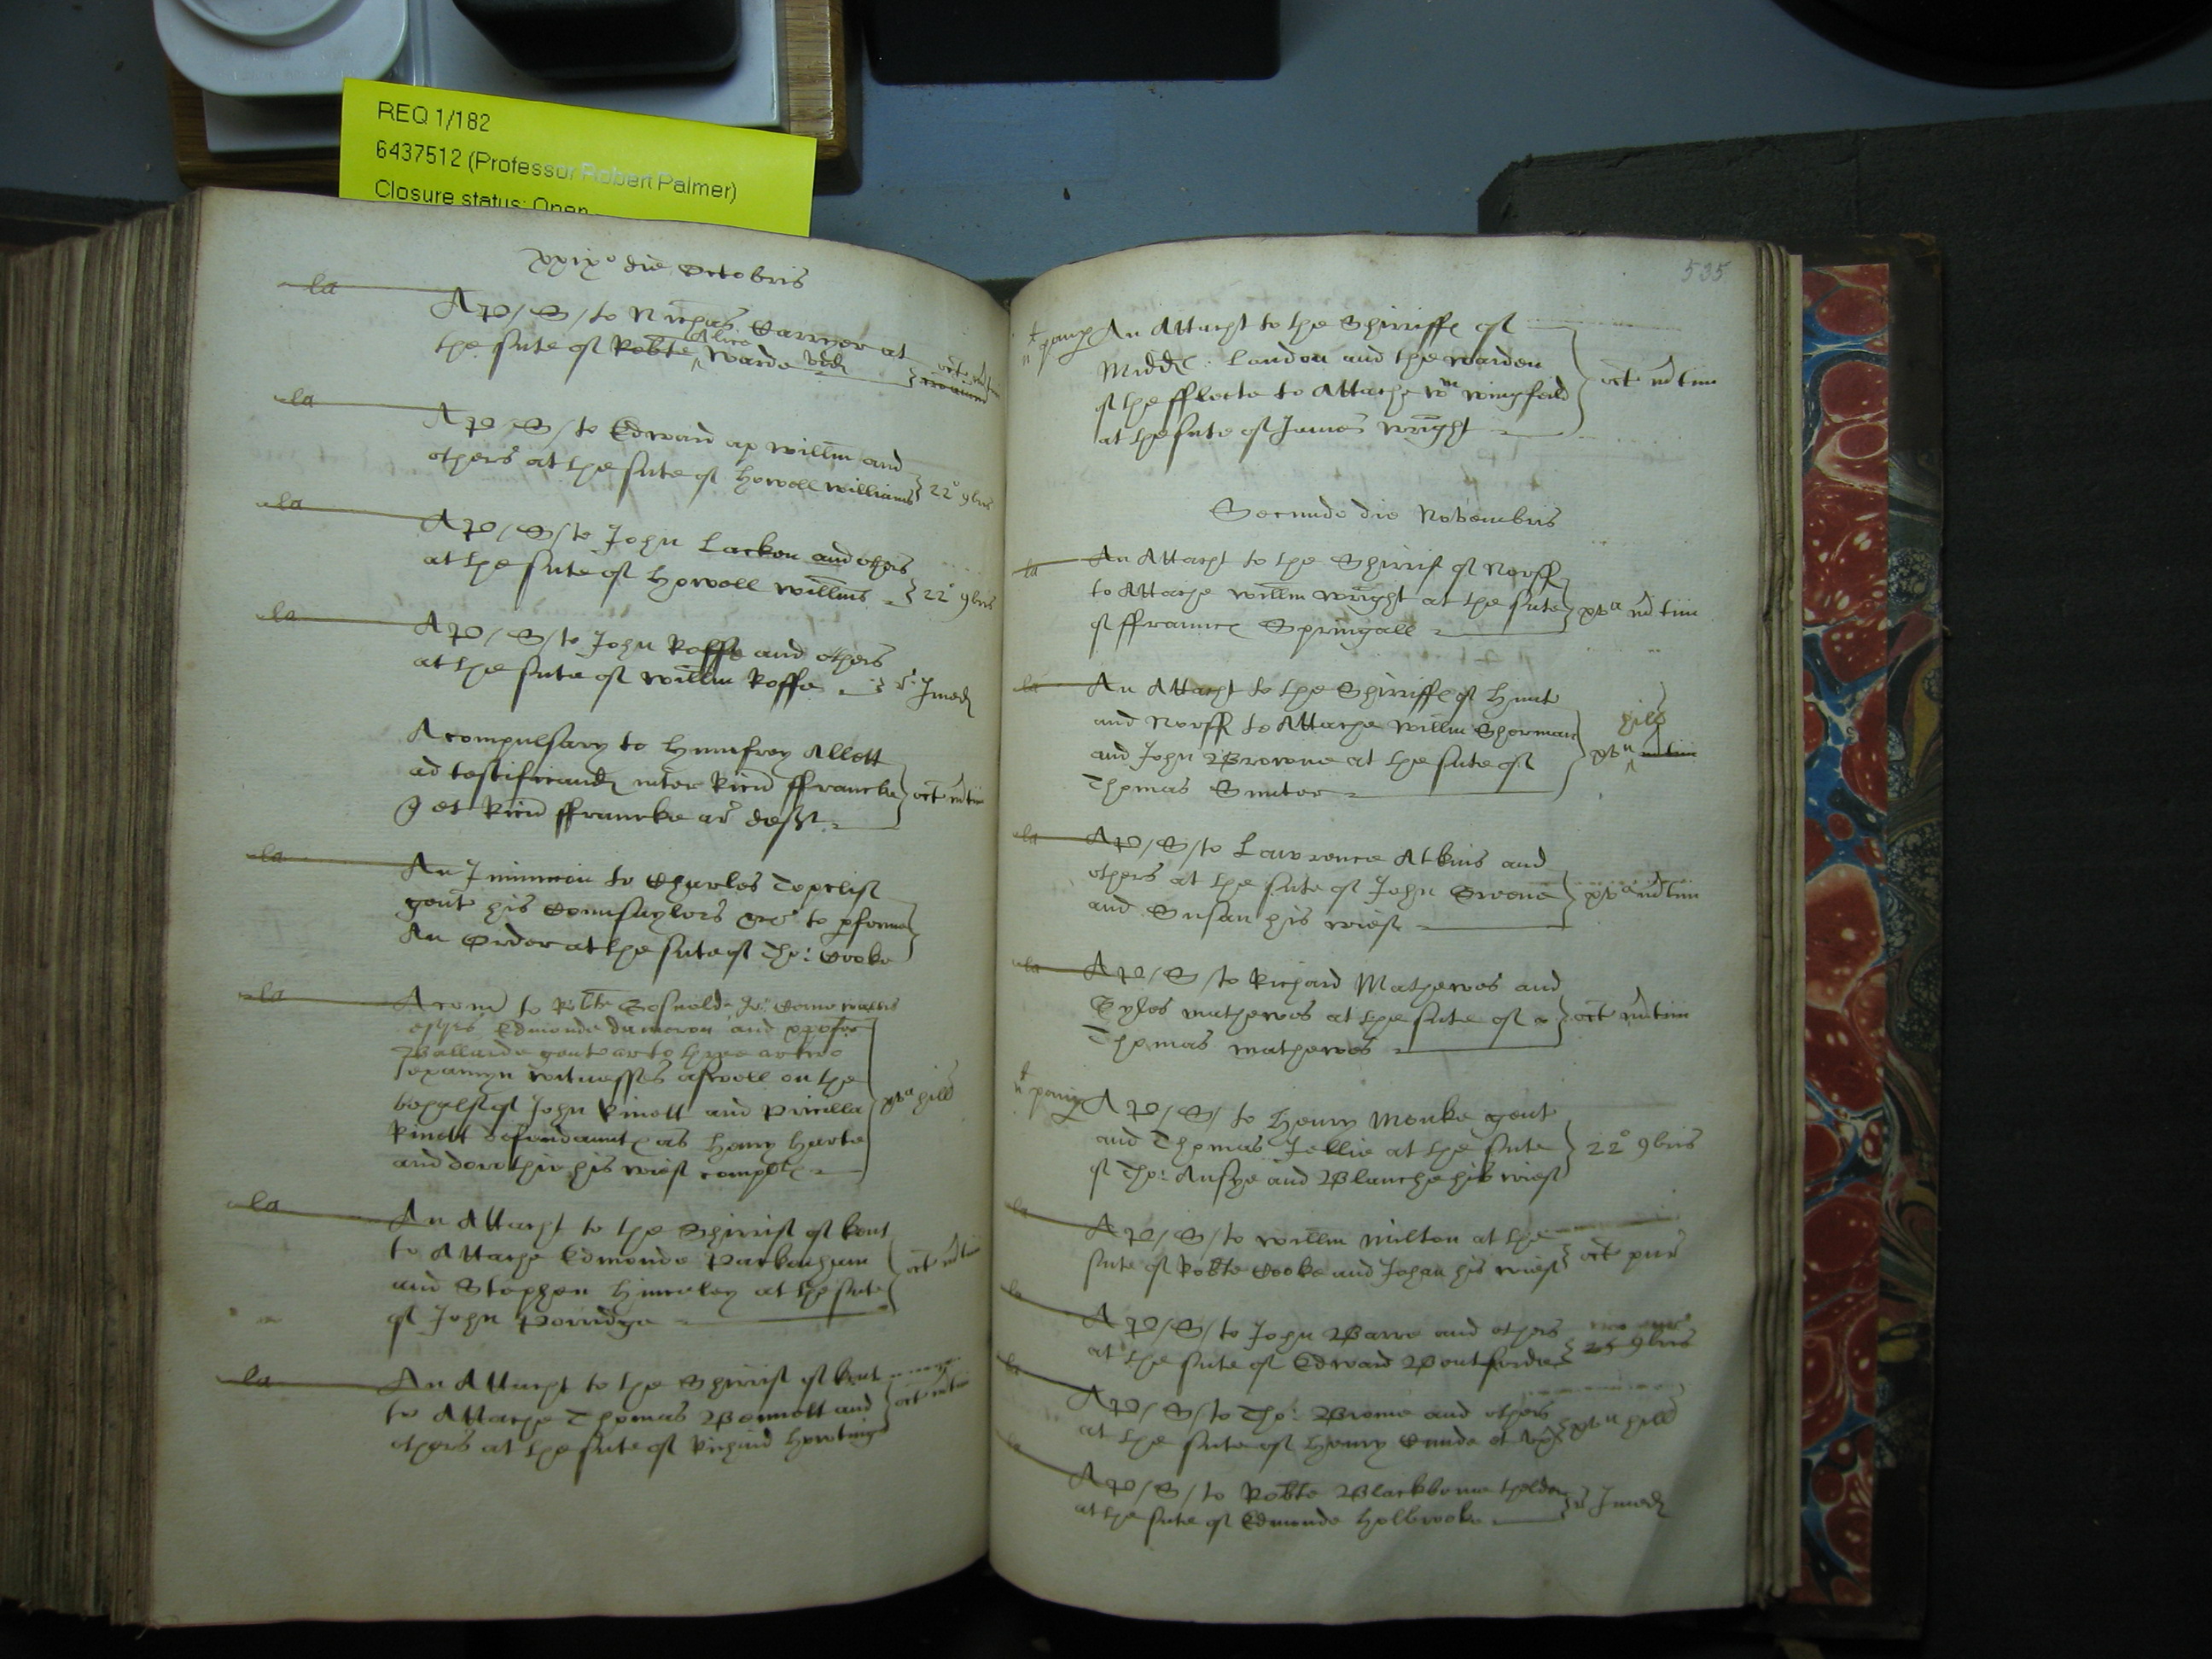 REQ 1/182
6437512 (Professor Robert Palmer)
Closure status: Open
xxixo die Octobris
la
A p /S/ to Nichas Carryer at
the sute of Robte Alice Warde vid
la
A p /S/ to Edward ap Willm and
others at the sute of Howell Williams } 22o 9bris
la
A p /S/ to John Lackon and others
at the sute of Howell Willms } 22o 9bris
la
A p /S/ to John Roffe and others
at the sute of Willm Roffe } Imed
A compulsary to Humfrey Allott
ad testificand inter Ricu ffrancke } oct mtin
q et Ricu ffrancke ar deft
la
An Iniunccion to Charles Topclif
gent his Counsaylors &c to pforme
An Order at the sute of Tho: Cooke
la
A com to Robte Gosnold Jo: Cornewallis
esqrs Edmonde Dameron and
Ballarde gent or to thre or two
to examyn witnesses aswell on the
behalf of John Kinett and Pricilla } xva hill
Kinett defendaunts as Henry Harte
and Dorithie his wief complts
la
An Attacht to the Shirrif of Kent
to Attache Edmonde Packenham } oct mtin
and Stephen Hinceley at the sute
of John Porridge
la
An Attacht to the Shirrif of Kent
to Attache Thomas Bennett and } oct mtin
others at the sute of Richard
535
An Attacht to the Shirriffe of
Midd: London and the warden } oct mtin
of the fflecte to Attache Wm Wingfeild
at the sute of James Wright
Secundo die Novembris
la
An Attacht to the Shirrif of Norff
to Attache Willm Wright at the sute } xva mtin
of ffraunce Springall
la
An Attacht to the Shirriffe of Hunt
and Norff to Attache Willm Sherman } hill
and John Browne at the sute of xva mtin
Thomas Sumter
la
A p /S/ to Lawrence Atkins and
others at the sute of John Swone } xva mtin
and Susan his wief
la
A p /S/ to Richard Mathewes and
Gyles Mathewes at the sute of } oct mtin
Thomas Mathewes
A p /S/ to Henry Monke gent
and Thomas Jellie at the sute } 22o 9bris
of Tho: Ansye and Blanche his wief
la
A p /S/ to Willm Milton at the
sute of Robte Cooke and Johan his wief } oct pur
la
A p /S/ to John Barre and others
at the sute of Edward } 25 9bris
la
A p /S/ to Tho: Brome and others
at the sute of Henry Cunde et ux } xva hill
la
A p /S/ to Robte Blackborne thelder
at the sute of Edmonde Holbrooke } Imed